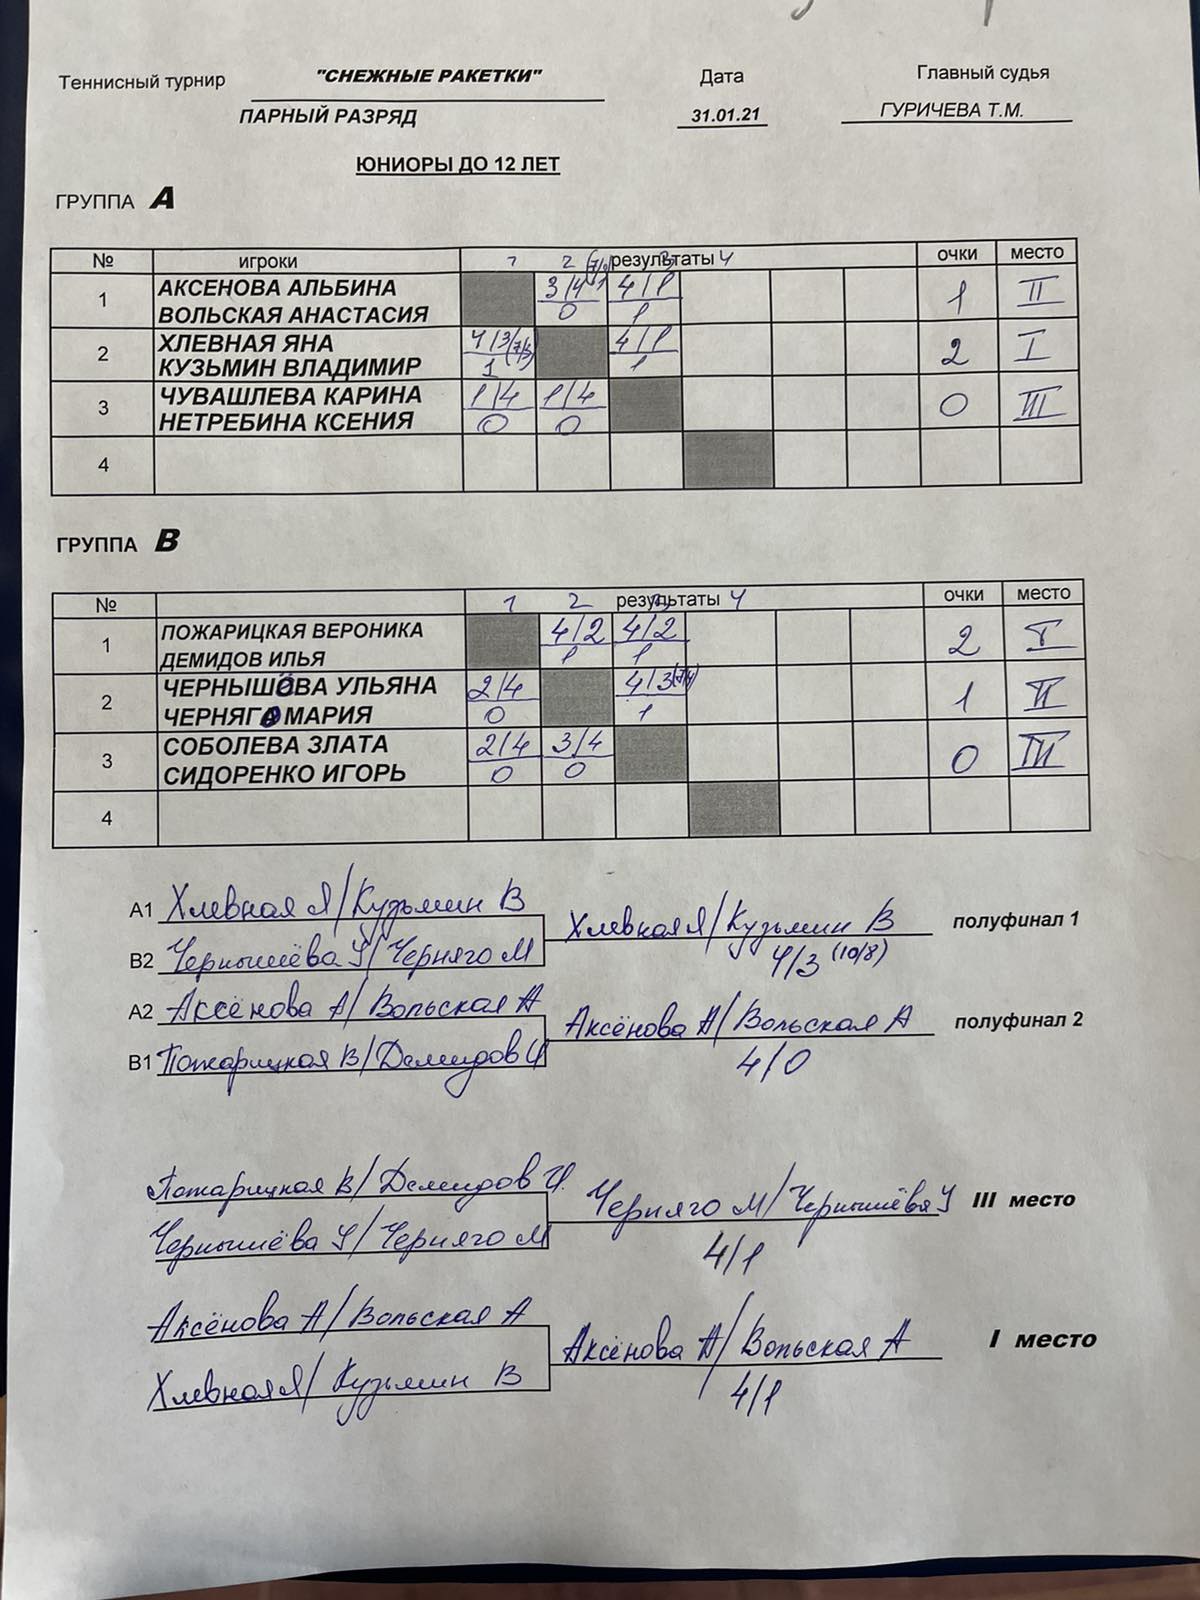 Теннисный турнир "СНЕЖНЫЕ РАКЕТКИ" Дата Главный судья
ПАРНЫЙ РАЗРЯД 31.01.21 ГУРИЧЕВА Т.М.
ЮНИОРЫ ДО 12 ЛЕТ
ГРУППА А
№ игроки 1 2 результаты 3 4 очки место
1 АКСЕНОВА АЛЬБИНА 3/4 4/1 1 II
ВОЛЬСКАЯ АНАСТАСИЯ 0 1
2 ХЛЕВНАЯ ЯНА 4/3 4/1 2 I
КУЗЬМИН ВЛАДИМИР 1 1
3 ЧУВАШЛЕВА КАРИНА 1/4 1/4 0 III
НЕТРЕБИНА КСЕНИЯ 0 0
4
ГРУППА В
№ 1 2 результаты 3 4 очки место
1 ПОЖАРИЦКАЯ ВЕРОНИКА 4/2 4/2 2 I
ДЕМИДОВ ИЛЬЯ 1 1
2 ЧЕРНЫШЁВА УЛЬЯНА 2/4 4/3 (7/4) 1 II
ЧЕРНЯГО МАРИЯ 0 1
3 СОБОЛЕВА ЗЛАТА 2/4 3/4 0 III
СИДОРЕНКО ИГОРЬ 0 0
4
А1 Хлевная Я/Кузьмин В
Хлевная Я/Кузьмин В полуфинал 1
В2 Чернышёва У/Черняго М
4/3 (10/8)
А2 Аксёнова А/Вольская А
Аксёнова А/Вольская А полуфинал 2
В1 Пожарицкая В/Демидов И
4/0
Пожарицкая В/Демидов И.
Черняго М/Чернышёва У III место
Чернышёва У/Черняго М
4/1
Аксёнова А/Вольская А
Аксёнова А/Вольская А I место
Хлевная Я/Кузьмин В
4/1